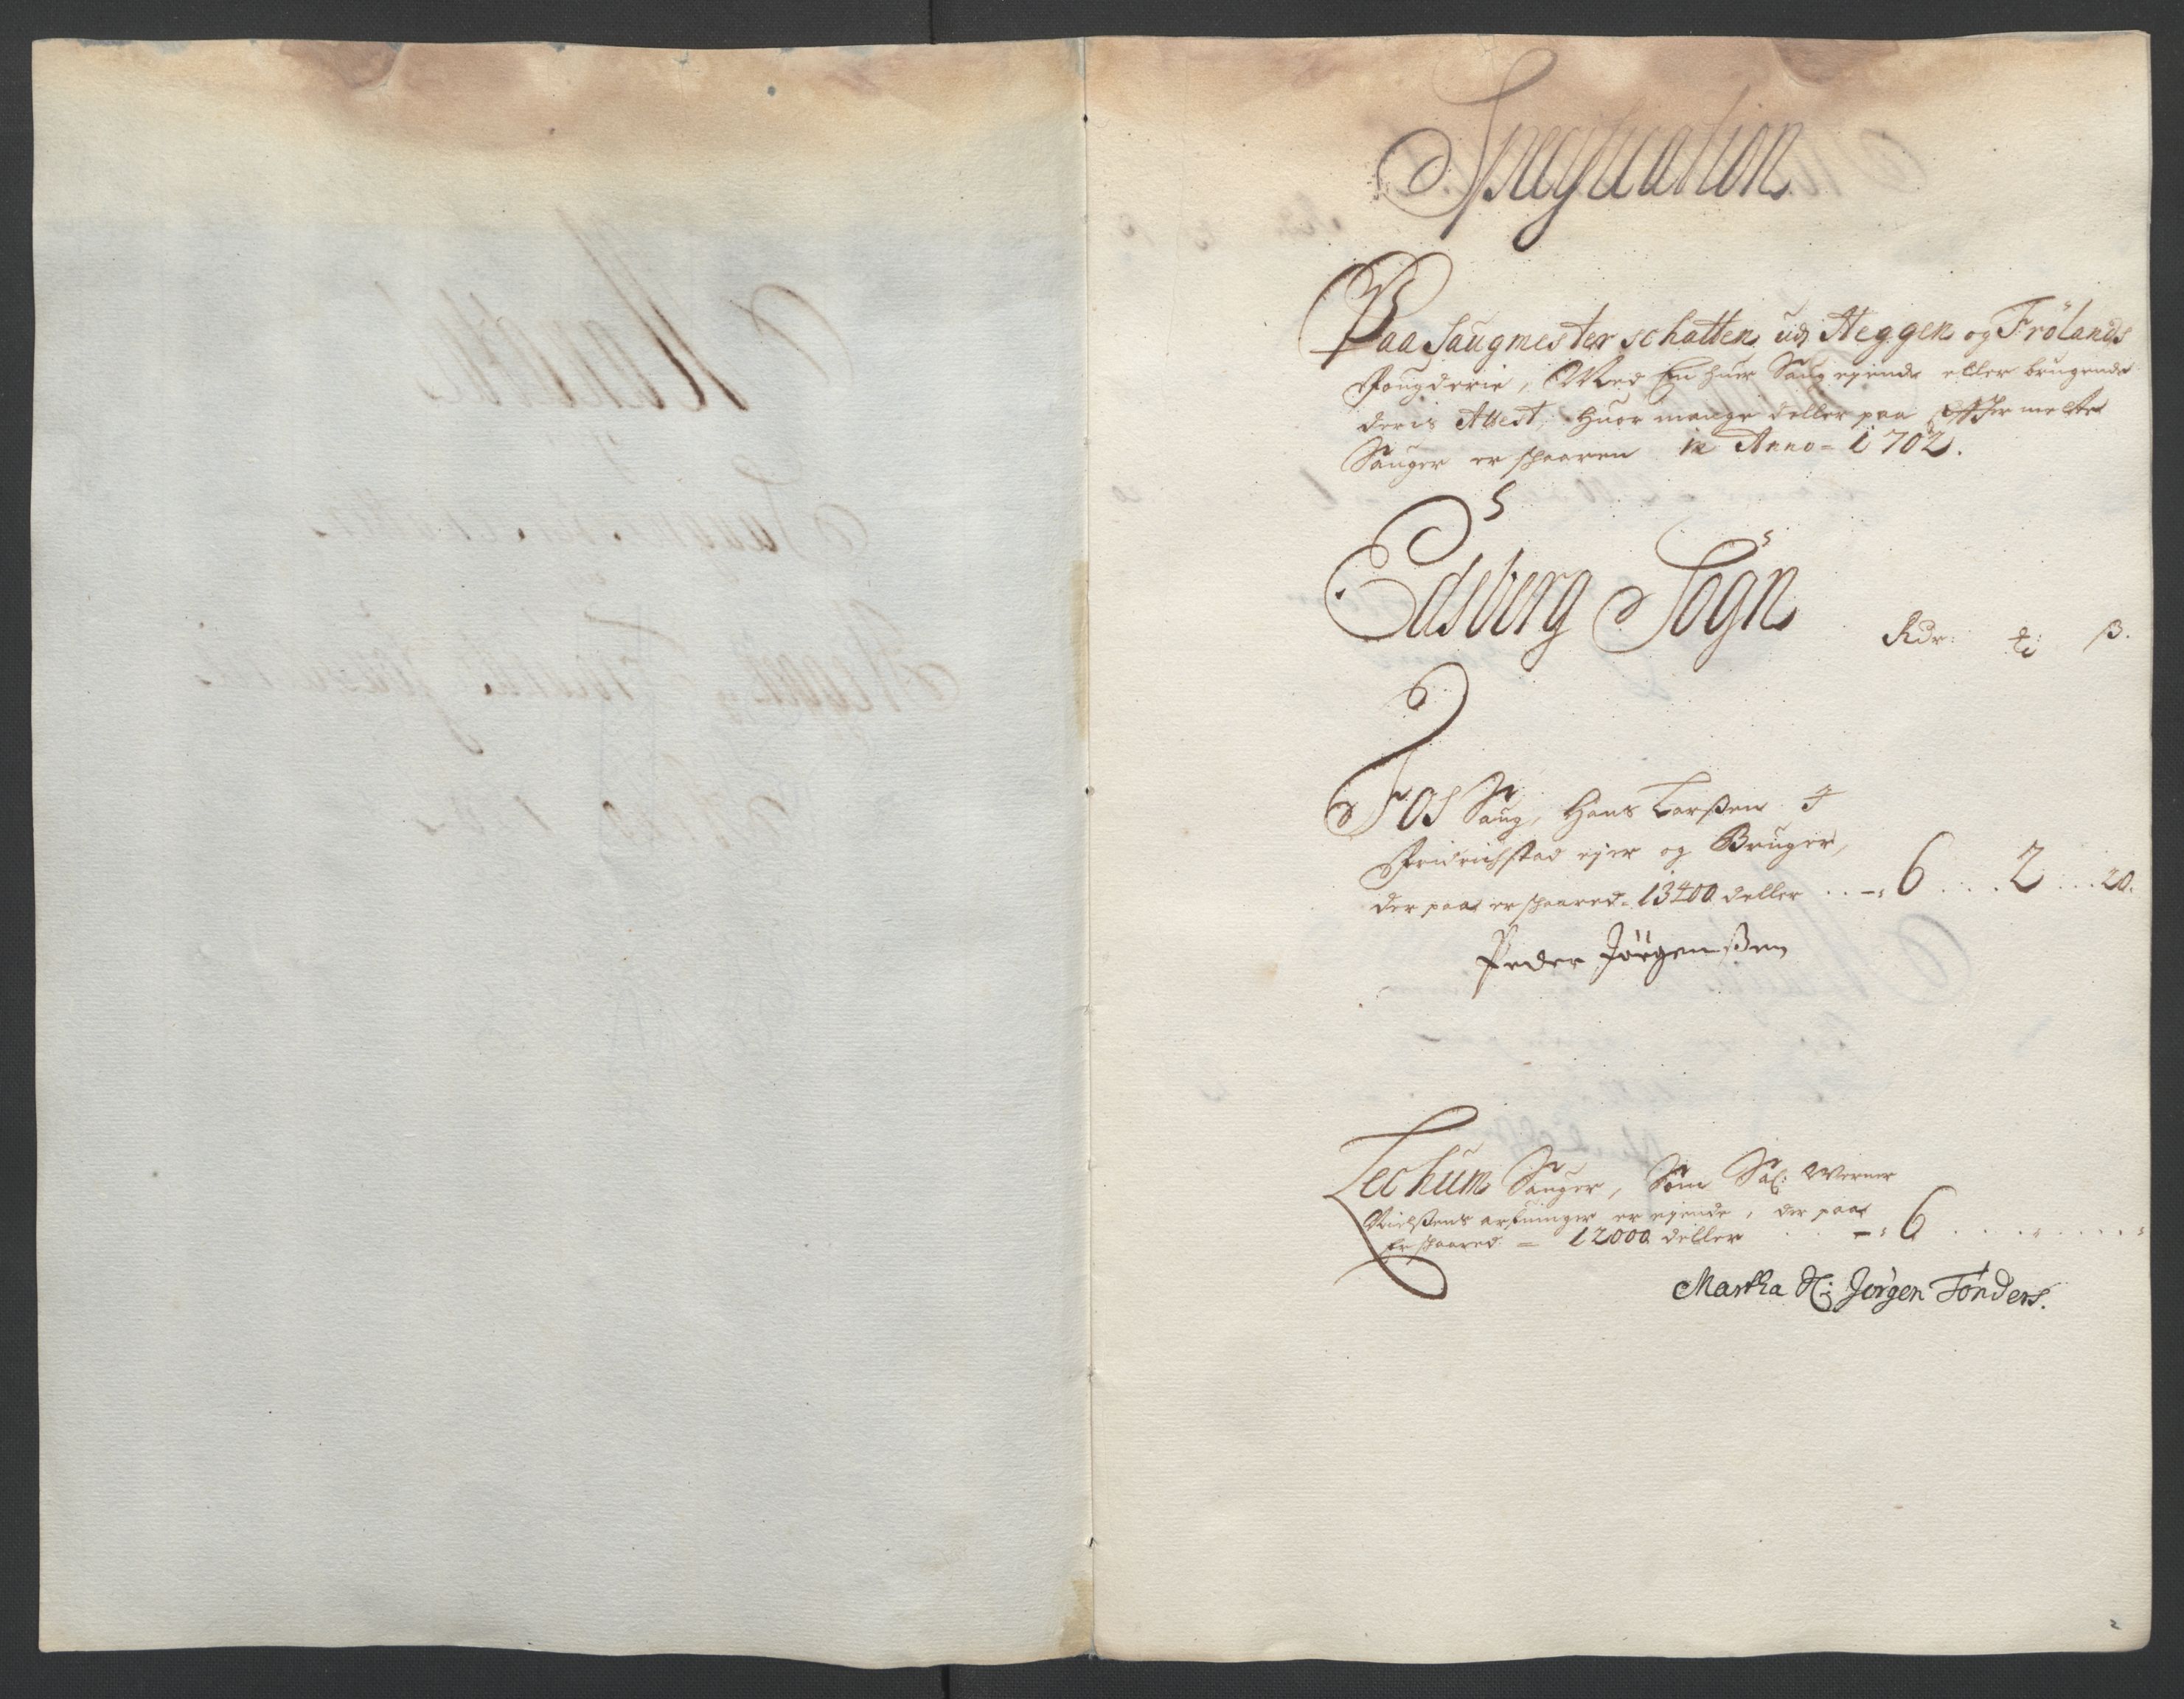 Specification
Paa Saugmester schatten, ud Heggen og Frölands
Fougderie, Med En huer Saug eyende eller brugende
deris Attest, Huor mange deller paa Effter melte
Sauger er skaaren in Anno = 1702.
Edsberg Sogn
Rdr: ß.
Fos Saug, Hans Larßen i
Fridrichstad eyer og Bruger,
der paa er skaared = 13400 deller .. 6 ... 2 ... 20.
Peder Jörgenßen
Lechum Sauger, Som Sal: Werner
Nielßens arfuinger er eyende, der paa
Er skaared = 12000 deller .. 6
Martha Jörgen Tønders.